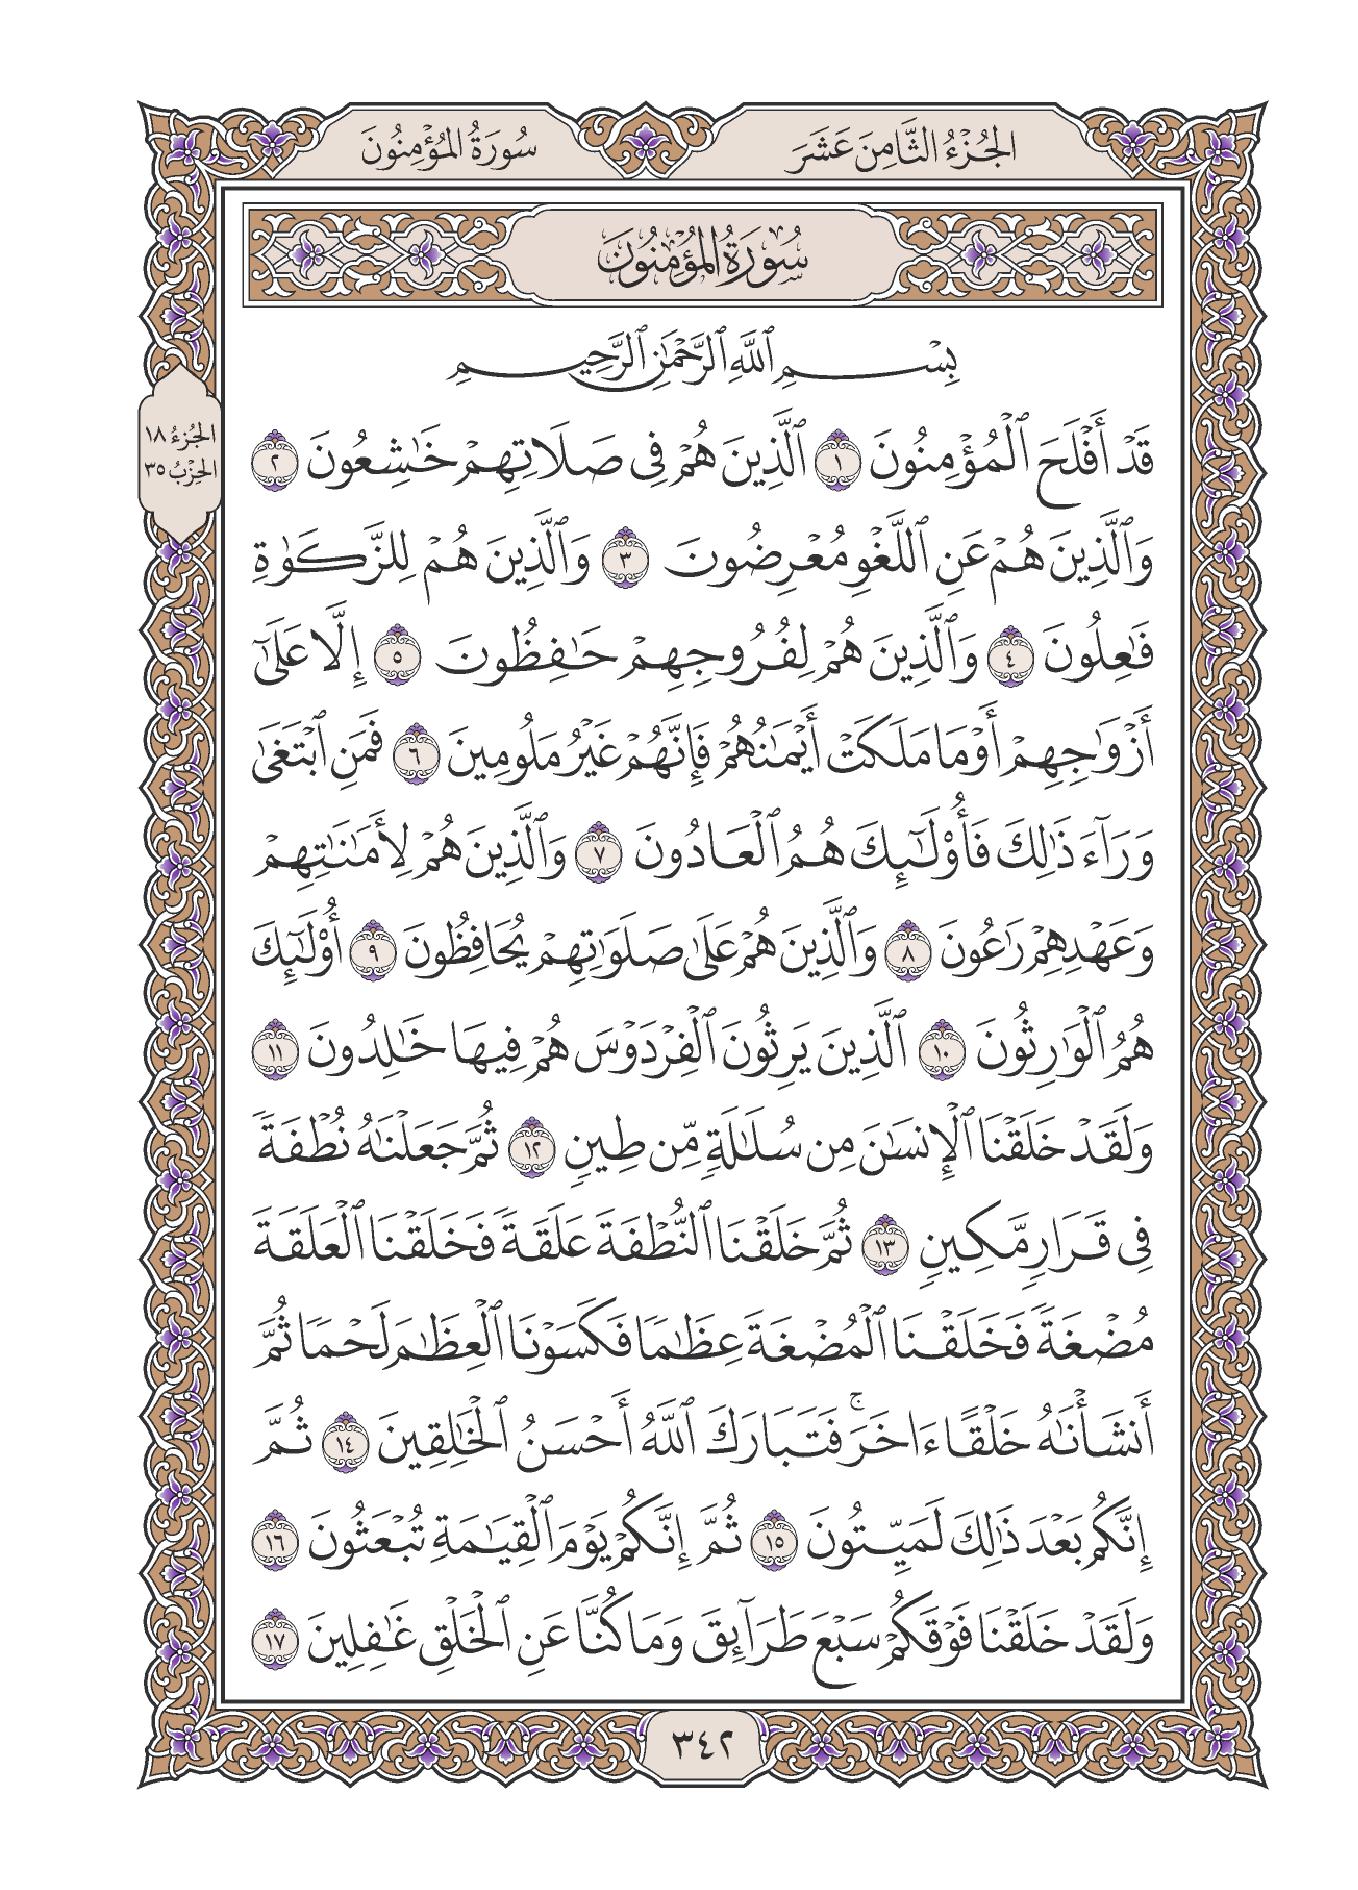 الجُزْءُ الثَّامِنَ عَشَرَ
سُورَةُ المُؤْمِنُونَ
سُورَةُ المُؤْمِنُونَ
بِسْمِ ٱللَّهِ ٱلرَّحْمَٰنِ ٱلرَّحِيمِ
الجُزءُ ١٨
الحِزْبُ ٣٥
قَدْ أَفْلَحَ ٱلْمُؤْمِنُونَ ١ ٱلَّذِينَ هُمْ فِى صَلَاتِهِمْ خَٰشِعُونَ ٢
وَٱلَّذِينَ هُمْ عَنِ ٱللَّغْوِ مُعْرِضُونَ ٣ وَٱلَّذِينَ هُمْ لِلزَّكَوٰةِ
فَٰعِلُونَ ٤ وَٱلَّذِينَ هُمْ لِفُرُوجِهِمْ حَٰفِظُونَ ٥ إِلَّا عَلَىٰٓ
أَزْوَٰجِهِمْ أَوْ مَا مَلَكَتْ أَيْمَٰنُهُمْ فَإِنَّهُمْ غَيْرُ مَلُومِينَ ٦ فَمَنِ ٱبْتَغَىٰ
وَرَآءَ ذَٰلِكَ فَأُو۟لَٰٓئِكَ هُمُ ٱلْعَادُونَ ٧ وَٱلَّذِينَ هُمْ لِأَمَٰنَٰتِهِمْ
وَعَهْدِهِمْ رَٰعُونَ ٨ وَٱلَّذِينَ هُمْ عَلَىٰ صَلَوَٰتِهِمْ يُحَافِظُونَ ٩ أُو۟لَٰٓئِكَ
هُمُ ٱلْوَٰرِثُونَ ١٠ ٱلَّذِينَ يَرِثُونَ ٱلْفِرْدَوْسَ هُمْ فِيهَا خَٰلِدُونَ ١١
وَلَقَدْ خَلَقْنَا ٱلْإِنسَٰنَ مِن سُلَٰلَةٍ مِّن طِينٍ ١٢ ثُمَّ جَعَلْنَٰهُ نُطْفَةً
فِى قَرَارٍ مَّكِينٍ ١٣ ثُمَّ خَلَقْنَا ٱلنُّطْفَةَ عَلَقَةً فَخَلَقْنَا ٱلْعَلَقَةَ
مُضْغَةً فَخَلَقْنَا ٱلْمُضْغَةَ عِظَٰمًا فَكَسَوْنَا ٱلْعِظَٰمَ لَحْمًا ثُمَّ
أَنشَأْنَٰهُ خَلْقًا ءَاخَرَ ۚ فَتَبَارَكَ ٱللَّهُ أَحْسَنُ ٱلْخَٰلِقِينَ ١٤ ثُمَّ
إِنَّكُم بَعْدَ ذَٰلِكَ لَمَيِّتُونَ ١٥ ثُمَّ إِنَّكُمْ يَوْمَ ٱلْقِيَٰمَةِ تُبْعَثُونَ ١٦
وَلَقَدْ خَلَقْنَا فَوْقَكُمْ سَبْعَ طَرَآئِقَ وَمَا كُنَّا عَنِ ٱلْخَلْقِ غَٰفِلِينَ ١٧
٣٤٢